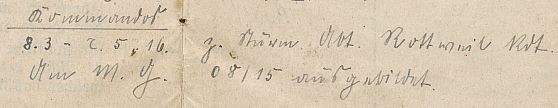 Kommandos
8.3 - 2.5.16. z. Sturm. Abt. Rottweil Kdt.
Am M. G. 08/15 ausgebildet.